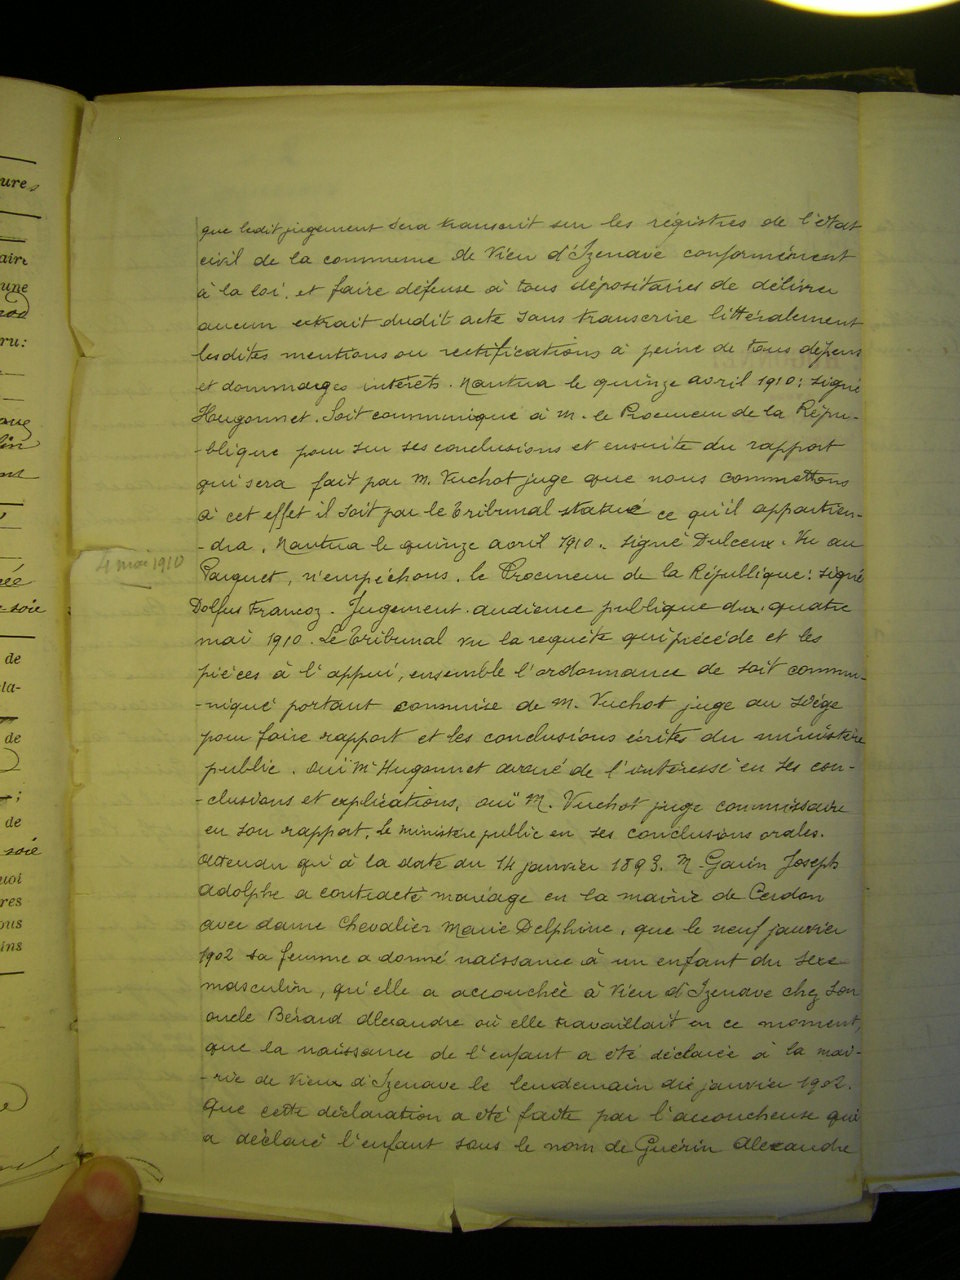 que ledit jugement sera transcrit sur les régistres de l'état
civil de la commune de Vieu d'Izenave conformément
à la loi, et faire défense à tous dépositaires de délivrer
aucun extrait dudit acte sans transcrire littéralement
lesdites mentions ou rectifications à peine de tous dépens
et dommages intérêts. Nantua le quinze avril 1910: signé
Hugonnet. Soit communiqué à M. le Procureur de la Répu-
-blique pour sur ses conclusions et ensuite du rapport
qui sera fait par M. Vuchot juge que nous commettons
à cet effet il soit par le Tribunal statué ce qu'il appartien-
-dra. Nantua le quinze avril 1910. signé Dulceux. Vu au
4 mai 1910
Parquet, n'empêchons. le Procureur de la République: signé
Dolfus Francoz. Jugement. audience publique du quatre
mai 1910. Le Tribunal vu la requête qui précède et les
pièces à l'appui, ensemble l'ordonnance de soit commu-
-niqué portant commise de M. Vuchot juge au siège
pour faire rapport et les conclusions écrites du ministère
public. ouï Me Hugonnet avoué de l'intéressé en ses con-
-clusions et explications, ouï M. Vuchot juge commissaire
en son rapport. Le ministère public en ses conclusions orales.
attendu qu'à la date du 14 janvier 1893. M. Garin Joseph
adolphe a contracté mariage en la mairie de Cerdon
avec dame Chevalier Marie Delphine, que le neuf janvier
1902 sa femme a donné naissance à un enfant du sexe
masculin, qu'elle a accouchée à Vieu d'Izenave chez son
oncle Bérard Alexandre où elle travaillait en ce moment,
que la naissance de l'enfant a été déclarée à la mai-
-rie de Vieux d'Izenave le lendemain dix janvier 1902.
Que cette déclaration a été faite par l'accoucheuse qui
a déclaré l'enfant sous le nom de Guérin Alexandre
ures
aire
une
ru:
ée
soie
de
la-
de
de
soie
uoi
res
ous
ins